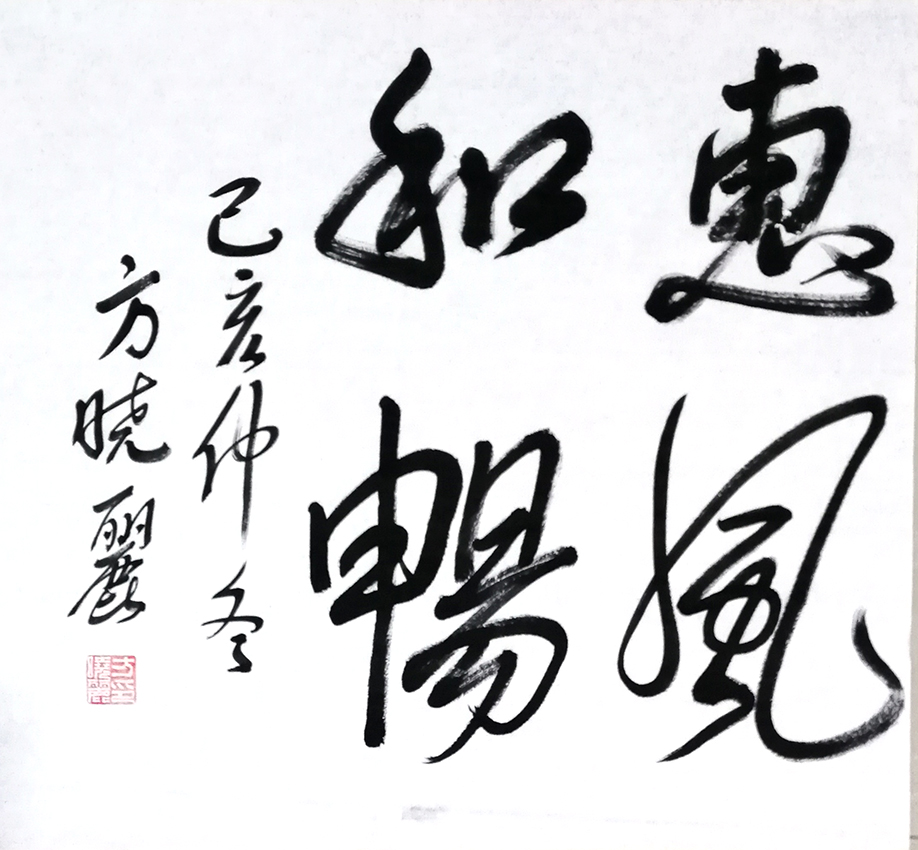 惠風
和暢
己亥仲冬
方曉麗